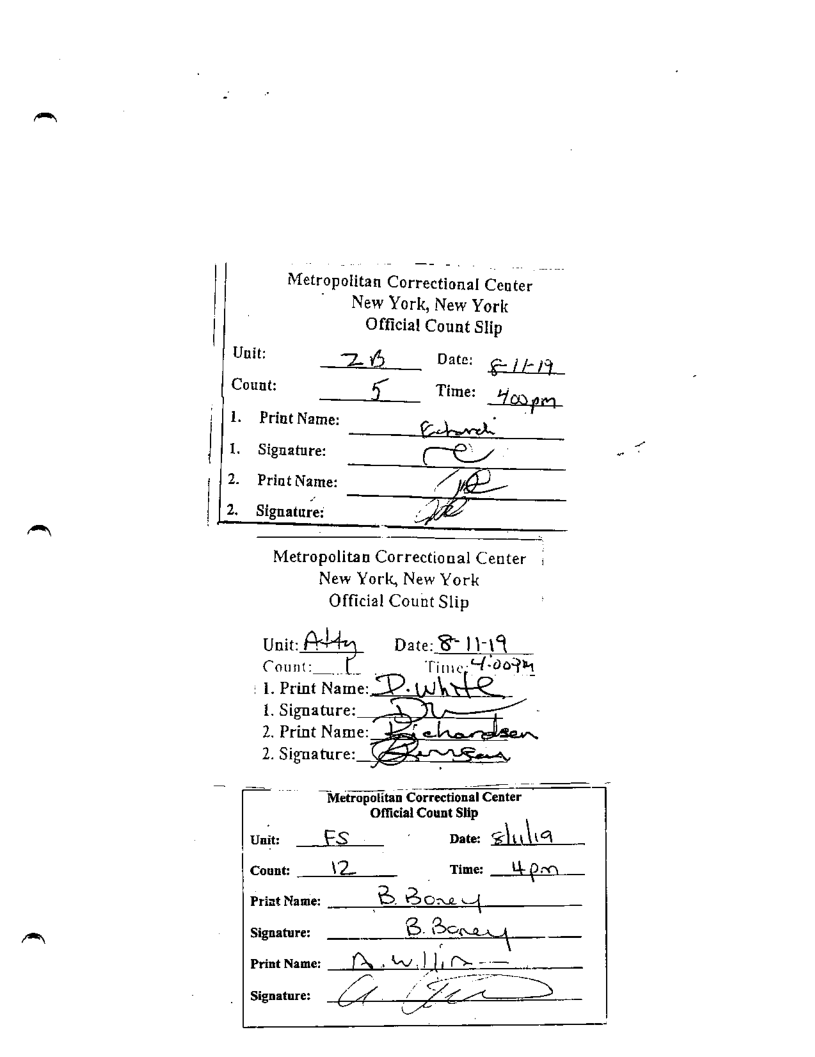 Metropolitan Correctional Center
New York, New York
Official Count Slip
Unit: Date: 8-11-19
Count: 5 Time: 400 pm
1. Print Name:
1. Signature:
2. Print Name:
2. Signature:
Metropolitan Correctional Center
New York, New York
Official Count Slip
Unit: Atty Date: 8-11-19
Count: 1 Time: 4:00PM
1. Print Name: D. White
1. Signature:
2. Print Name: Richardsen
2. Signature:
Metropolitan Correctional Center
Official Count Slip
Unit: FS Date: 8/11/19
Count: 12 Time: 4pm
Print Name: B. Boney
Signature: B. Boney
Print Name: A.
Signature: